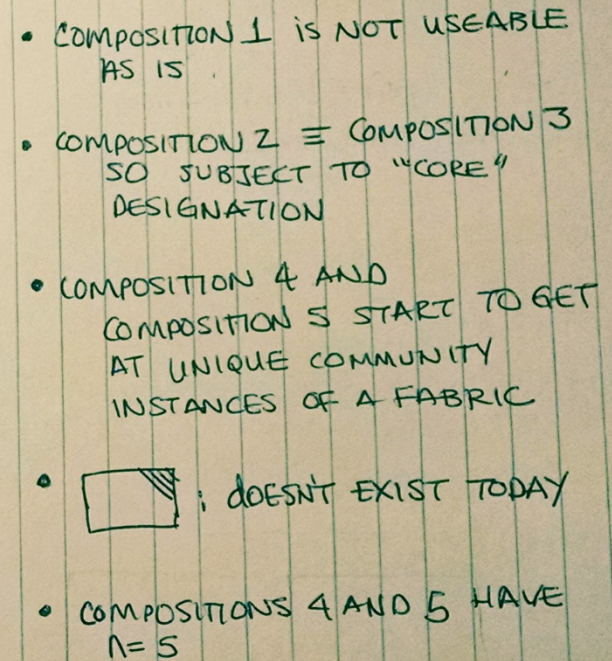 • COMPOSITION 1 is NOT USEABLE
AS IS .
• COMPOSITION 2 ≡ COMPOSITION 3
SO SUBJECT TO "CORE"
DESIGNATION
• COMPOSITION 4 AND
COMPOSITION 5 START TO GET
AT UNIQUE COMMUNITY
INSTANCES OF A FABRIC
• : dOESN'T EXIST TODAY
• COMPOSITIONS 4 AND 5 HAVE
n= 5